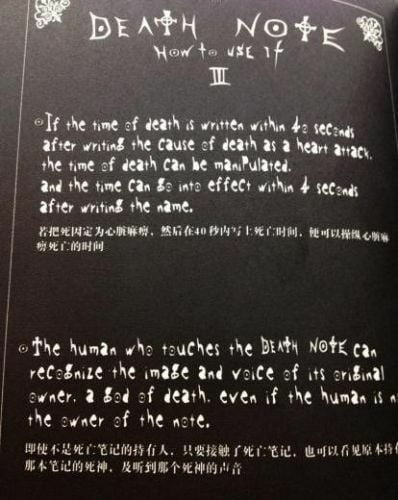 DEATH NOTE
How to use it
III
If the time of death is written within 40 seconds
after writing the cause of death as a heart attack,
the time of death can be manipulated,
and the time can go into effect within 4 seconds
after writing the name.
若把死因定为心脏麻痹，然后在40秒内写上死亡时间，便可以操纵心脏麻
痹死亡的时间
The human who touches the DEATH NOTE can
recognize the image and voice of its original
owner, a god of death, even if the human is n
the owner of the note.
即使不是死亡笔记的持有人，只要接触了死亡笔记，也可以看见原本持
那本笔记的死神，及听到那个死神的声音